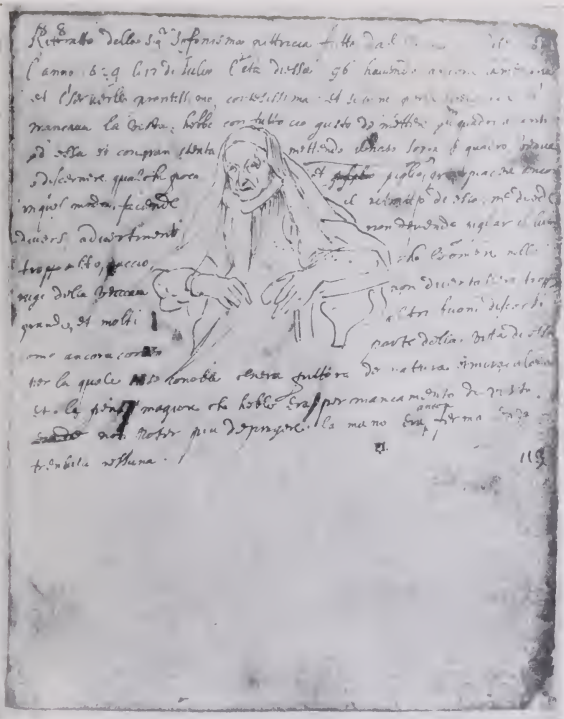 Rittratto della Sig.ra Sofonisma pittricia fatto dal
l'anno 1624 li 12 di Julio l'età di essa 96 havendo ancora
et il servello prontissimo, cortesissima et se bene per la
mancava la vista, hebbe con tutto cio gusto de mettere gli quadri avanti
ad essa et con gran stenta mettendo il naso sopra il quadro,
a discernere qualche poca et piglio gran piacere ancora
in quel modo, facendo il ritratto de essa, me diede
diversi advertimenti non dovendo pigliar il lume
troppo alto, accio che l'ombre nelle
ruge della vecciaia non diventassero troppo
grande, et molti altri buoni discorsi
come ancora parte della vita di essa
per la quale si conobbe ch'era pittora de natura et miraculosa
et la pena magiore che hebbe era per mancamento di vista
non poter piu depingere. la mano era ancora ferma senza
tremula nessuna.
115